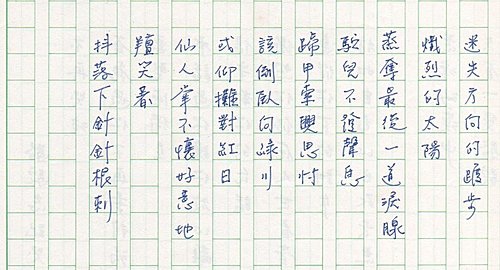 迷失方向的踱步
熾烈的太陽
蒸奪最後一道淚腺
駝兒不發聲息
蹄甲索興思忖
該倒臥向綠川
或仰攤對紅日
仙人掌不懷好意地
羶笑著
抖落下針針根刺